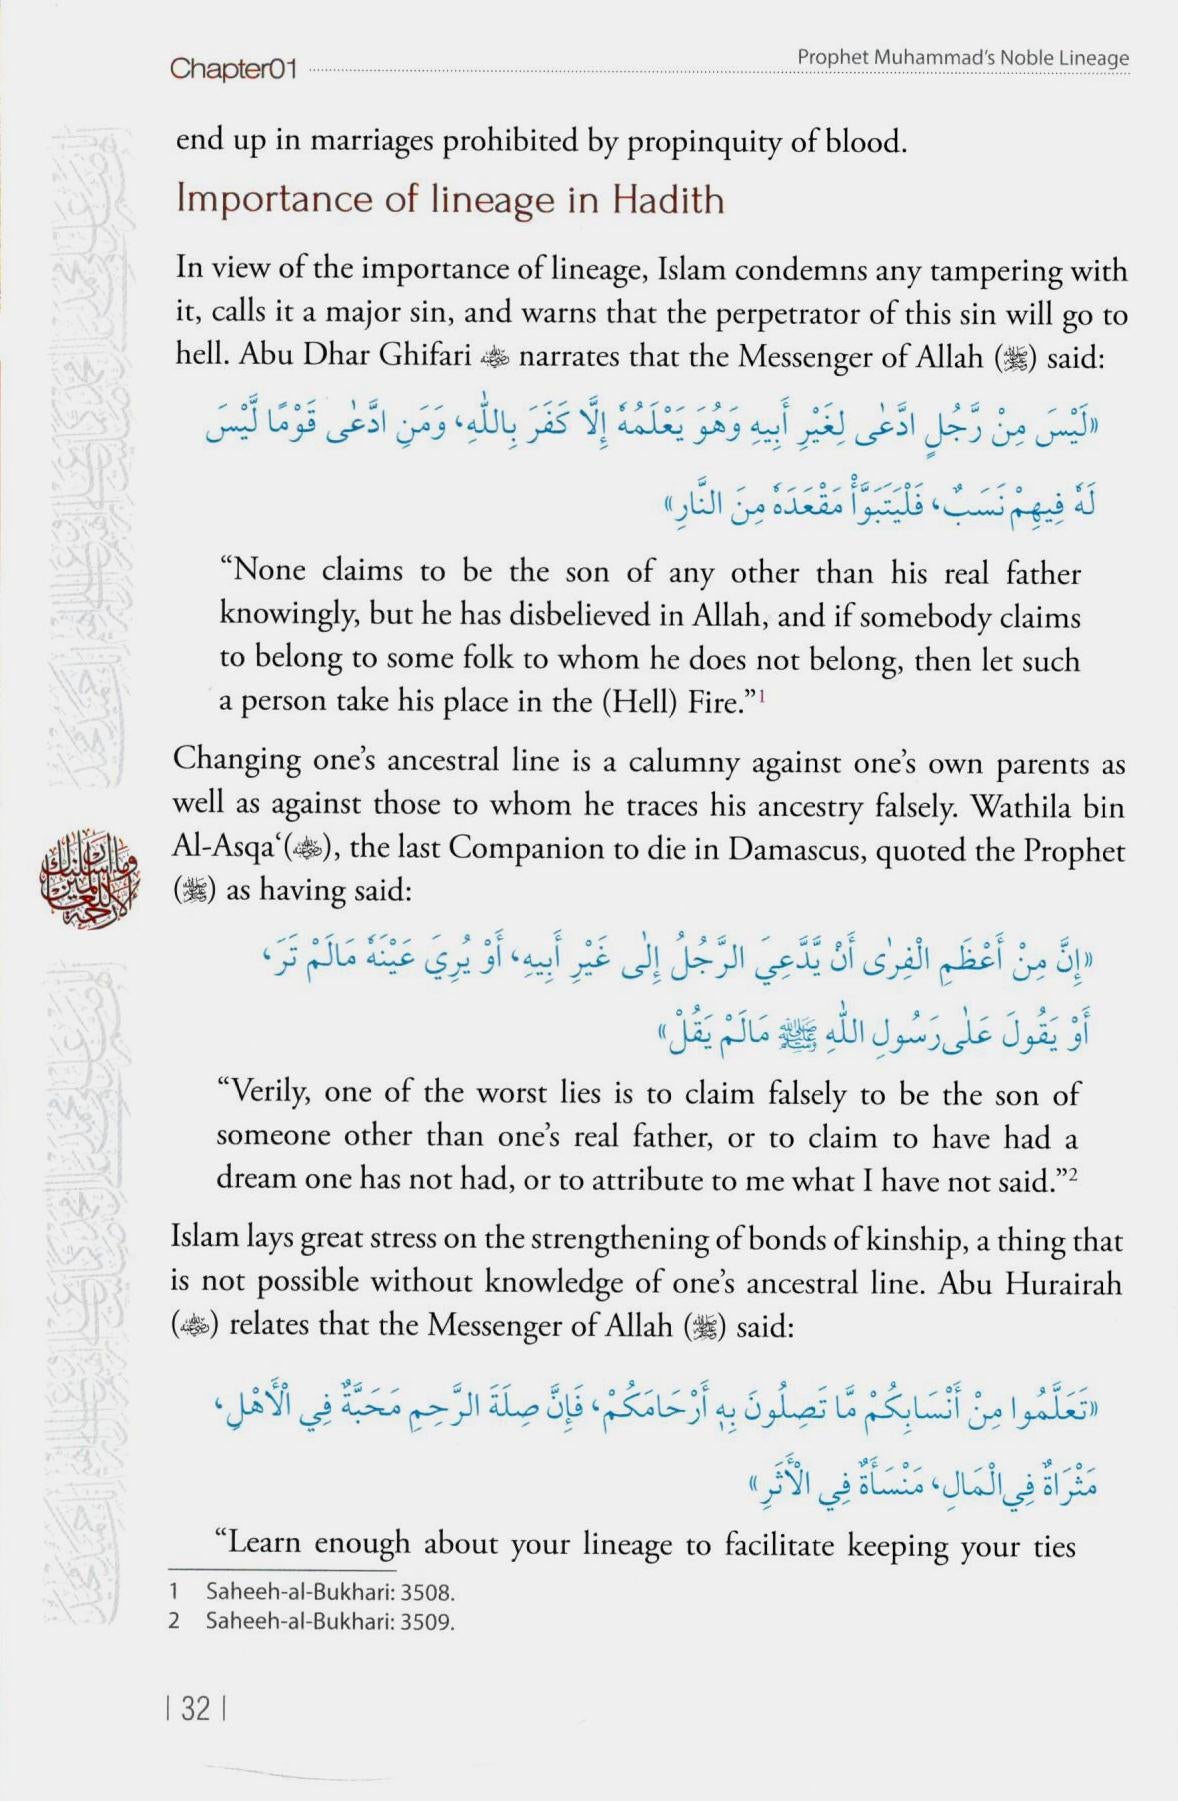 Chapter01
Prophet Muhammad's Noble Lineage
end up in marriages prohibited by propinquity of blood.
Importance of lineage in Hadith
In view of the importance of lineage, Islam condemns any tampering with
it, calls it a major sin, and warns that the perpetrator of this sin will go to
hell. Abu Dhar Ghifari رضي الله عنه narrates that the Messenger of Allah (ﷺ) said:
«لَيْسَ مِنْ رَّجُلٍ ادَّعٰى لِغَيْرِ أَبِيهِ وَهُوَ يَعْلَمُهُ إِلَّا كَفَرَ بِاللّٰهِ، وَمَنِ ادَّعٰى قَوْمًا لَّيْسَ
لَهُ فِيهِمْ نَسَبٌ، فَلْيَتَبَوَّأْ مَقْعَدَهُ مِنَ النَّارِ»
“None claims to be the son of any other than his real father
knowingly, but he has disbelieved in Allah, and if somebody claims
to belong to some folk to whom he does not belong, then let such
a person take his place in the (Hell) Fire.”1
Changing one’s ancestral line is a calumny against one’s own parents as
well as against those to whom he traces his ancestry falsely. Wathila bin
Al-Asqa‘(رضي الله عنه), the last Companion to die in Damascus, quoted the Prophet
(ﷺ) as having said:
«إِنَّ مِنْ أَعْظَمِ الْفِرٰى أَنْ يَّدَّعِيَ الرَّجُلُ إِلٰى غَيْرِ أَبِيهِ، أَوْ يُرِيَ عَيْنَهُ مَالَمْ تَرَ،
أَوْ يَقُولَ عَلٰى رَسُولِ اللّٰهِ ﷺ مَالَمْ يَقُلْ»
“Verily, one of the worst lies is to claim falsely to be the son of
someone other than one’s real father, or to claim to have had a
dream one has not had, or to attribute to me what I have not said.”2
Islam lays great stress on the strengthening of bonds of kinship, a thing that
is not possible without knowledge of one’s ancestral line. Abu Hurairah
(رضي الله عنه) relates that the Messenger of Allah (ﷺ) said:
«تَعَلَّمُوا مِنْ أَنْسَابِكُمْ مَّا تَصِلُونَ بِهٖ أَرْحَامَكُمْ، فَإِنَّ صِلَةَ الرَّحِمِ مَحَبَّةٌ فِي الْأَهْلِ،
مَثْرَاةٌ فِي الْمَالِ، مَنْسَأَةٌ فِي الْأَثَرِ»
“Learn enough about your lineage to facilitate keeping your ties
1 Saheeh-al-Bukhari: 3508.
2 Saheeh-al-Bukhari: 3509.
| 32 |
وما أرسلناك إلا رحمة للعالمين